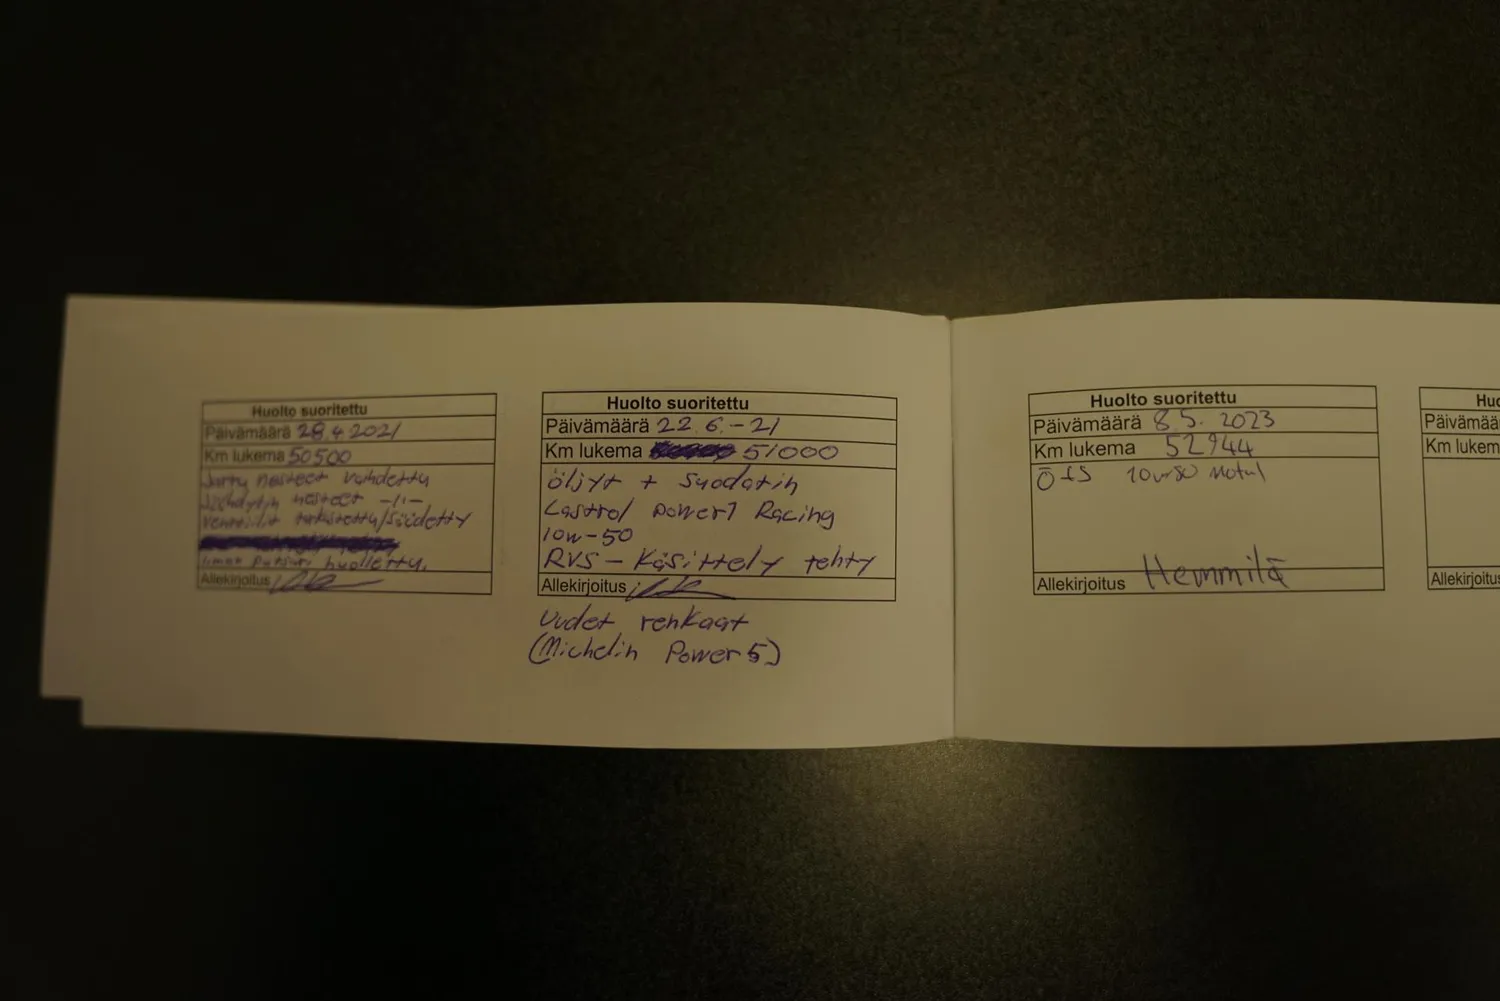 Huolto suoritettu
Päivämäärä 28.4 2021
Km lukema 50500
Jarru nesteet vaihdettu
Jäähdytin nesteet -11-
Venttiilit tarkistettu/säädetty
huollettu.
Allekirjoitus
Huolto suoritettu
Päivämäärä 22.6.-21
Km lukema 51000
öljyt + suodatin
Castrol Power1 Racing
10w-50
RVS - Käsittely tehty
Allekirjoitus
Uudet renkaat
(Michelin Power 5)
Huolto suoritettu
Päivämäärä 8.5. 2023
Km lukema 52944
Ö+S 10w50 Motul
Allekirjoitus Hemmilä
Huo
Päivämää
Km lukem
Allekirjoitus